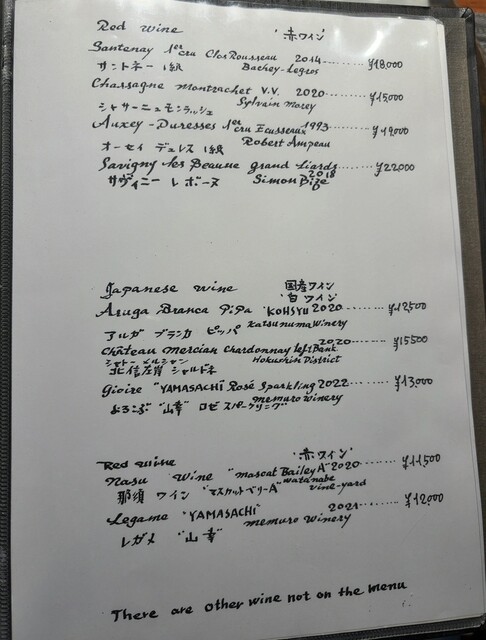 Red wine '赤ワイン'
Santenay 1er cru Clos Rousseau 2014 ¥18,000
サントネー 1級 Bachey-Legros
Chassagne montrachet V.V. 2020 ¥15,000
シャサーニュモンラッシェ Sylvain Morey
Auxey-Duresses 1er cru Ecusseaux 1993 ¥19,000
オーセイ デュレス 1級 Robert Ampeau
Savigny les Beaune grand Liards 2018 ¥22000
サヴィニー レ ボーヌ Simon Bize
Japanese wine 国産ワイン
'白ワイン'
Aruga Branca Pipa "KOHSYU 2020 ¥12,500
アルガ ブランカ ピッパ Katsunuma Winery
Château Mercian Chardonnay left Bank 2020 ¥15500
シャトー メルシャン
北信左岸 シャルドネ Hokushin District
Gioire "YAMASACHI" Rosé Sparkling 2022 ¥13,000
よろこぶ "山幸" ロゼ スパークリング memuro winery
Red wine '赤ワイン'
Nasu Wine "mascat Bailey A" 2020 ¥11,500
那須 ワイン "マスカットベリーA" watanabe vine-yard
Legame "YAMASACHI" 2021 ¥12,000
レガメ "山幸" memuro winery
There are other wine not on the menu